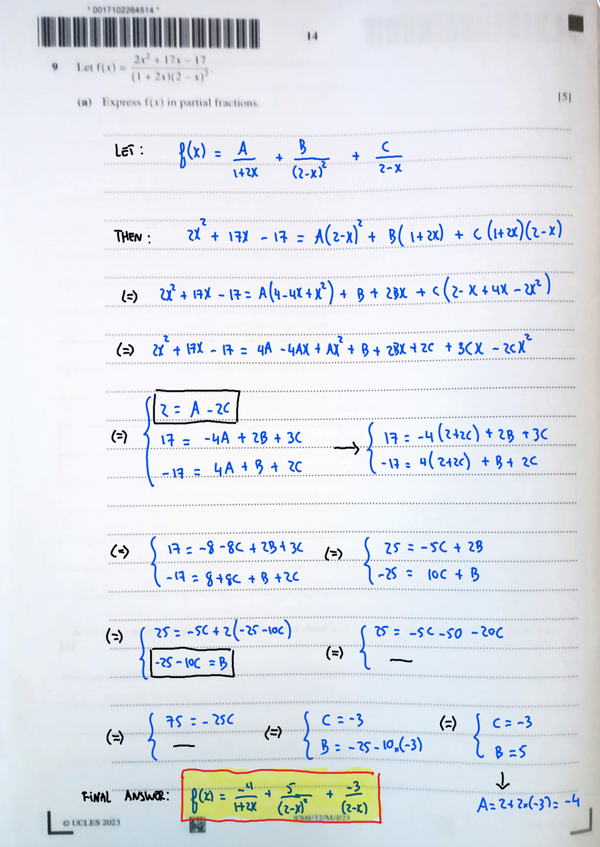 * 0017102264514 *
14
9 Let f(x) = (2x² + 17x − 17) / ((1 + 2x)(2 − x)²).
(a) Express f(x) in partial fractions. [5]
LET : f(x) = A/(1+2x) + B/(2-x)² + C/(2-x)
THEN : 2x² + 17x - 17 = A(2-x)² + B(1+2x) + C(1+2x)(2-x)
(=) 2x² + 17x - 17 = A(4-4x+x²) + B + 2Bx + C(2-x+4x-2x²)
(=) 2x² + 17x - 17 = 4A - 4Ax + Ax² + B + 2Bx + 2C + 3Cx - 2Cx²
(=) { 2 = A - 2C
17 = -4A + 2B + 3C → { 17 = -4(2+2C) + 2B + 3C
-17 = 4A + B + 2C -17 = 4(2+2C) + B + 2C
(=) { 17 = -8 - 8C + 2B + 3C (=) { 25 = -5C + 2B
-17 = 8 + 8C + B + 2C -25 = 10C + B
(=) { 25 = -5C + 2(-25-10C) (=) { 25 = -5C - 50 - 20C
-25 - 10C = B —
(=) { 75 = -25C (=) { C = -3 (=) { C = -3
— B = -25 - 10×(-3) B = 5
↓
FINAL ANSWER: f(x) = -4/(1+2x) + 5/(2-x)² + -3/(2-x) A = 2 + 2×(-3) = -4
© UCLES 2023 9709/32/M/J/23